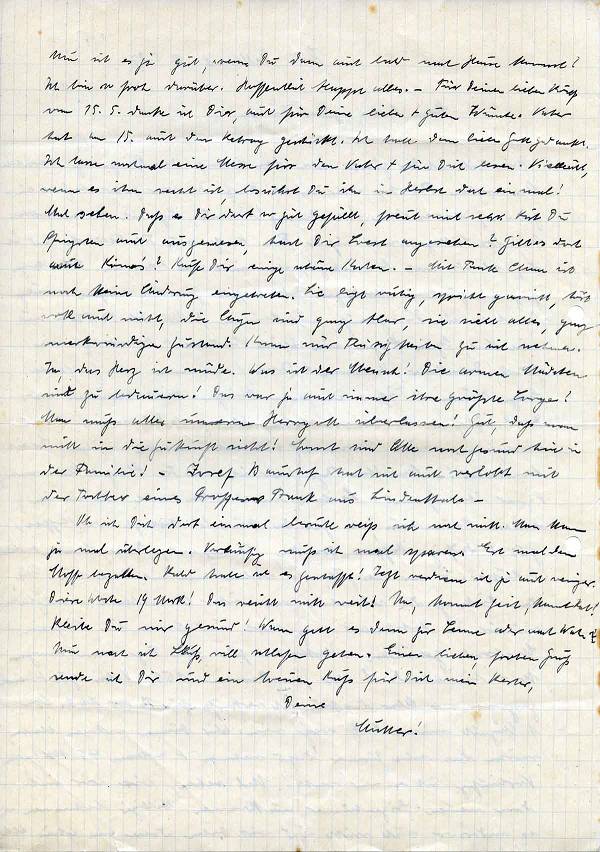 Nun ist es ja gut, wenn Du dann auch bald nach Hause kommst!
Ich bin so froh darüber. Hoffentlich klappt alles. – Für Deinen lieben
vom 15. 5. danke ich Dir, auch für Deine lieben + guten Wünsche. Vater
hat am 15. auch den Betrag geschickt. Ich habe dem lieben Gott gedankt.
Ich lasse nochmal eine Messe für den Vater + für Dich lesen. Vielleicht,
wenn es ihm recht ist, besuchst Du ihn im Herbst dort einmal!
Mal sehen. Daß es Dir dort so gut gefällt, freut mich sehr. Bist Du
Pfingsten auch ausgewesen, hast Dir angesehen? Gibt es dort
auch Kinos? Kaufe Dir einige Karten. – Mit Tante ist
noch keine Änderung eingetreten. Sie liegt ruhig, spricht
nicht, die Augen sind ganz klar, sie sieht alles, ganz
merkwürdiger Zustand. Kann nur Flüssigkeiten zu sich nehmen.
Ja, das Herz ist müde. Was ist der Mensch! Die armen Mädchen
sind zu bedauern! Das war ja auch immer ihre größte Sorge!
Man muß alles unserem Herrgott überlassen! Gut, daß man
nicht in die Zukunft sieht! Sonst sind Alle noch gesund hier in
der Familie! – Josef hat sich auch verlobt mit
der Tochter eines Professors Frank aus Lindenthal. –
Ob ich Dich dort einmal besuche weiß ich noch nicht. Man kann
ja mal überlegen. Vorläufig muß ich mal sparen. Erst mal den
Stoff bezahlen. Bald habe ich es geschafft! Jetzt verdiene ich ja auch weniger.
Diese Woche 19 Mark! Das reicht nicht weit! Na, kommt Zeit, kommt Rat!
Bleibe Du nur gesund! Wann geht es denn zur oder nach
Nun mach ich Schluß, will schlafen gehen. Einen lieben, frohen Gruß
sende ich Dir und ein treuen Kuß für Dich mein
Deine
Mutter!